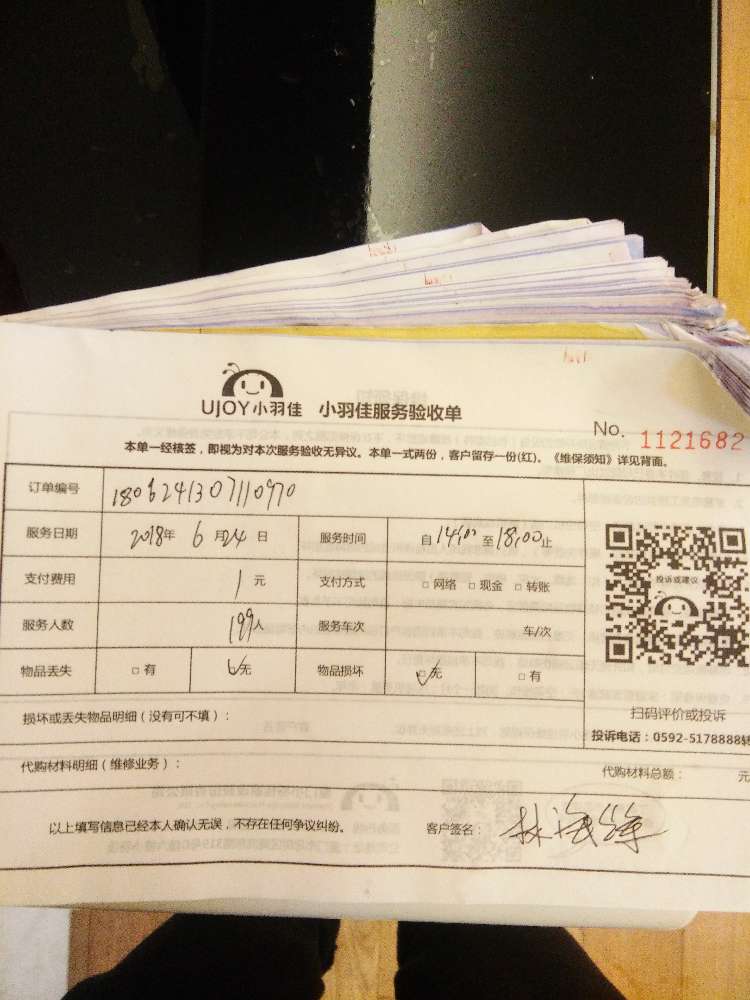 UJOY小羽佳 小羽佳服务验收单
No. 1121682
本单一经核签，即视为对本次服务验收无异议。本单一式两份，客户留存一份(红)。《维保须知》详见背面。
订单编号 1806241307110970
服务日期 2018年 6月24日 服务时间 自14:00至18:00止
支付费用 1元 支付方式 □网络 □现金 □转账
投诉或建议
服务人数 199人 服务车次 车/次
物品丢失 □有 ☑无 物品损坏 ☑无 □有
损坏或丢失物品明细（没有可不填）：
扫码评价或投诉
投诉电话：0592-5178888转
代购材料明细（维修业务）：
代购材料总额： 元
以上填写信息已经本人确认无误，不存在任何争议纠纷。 客户签名： 林海